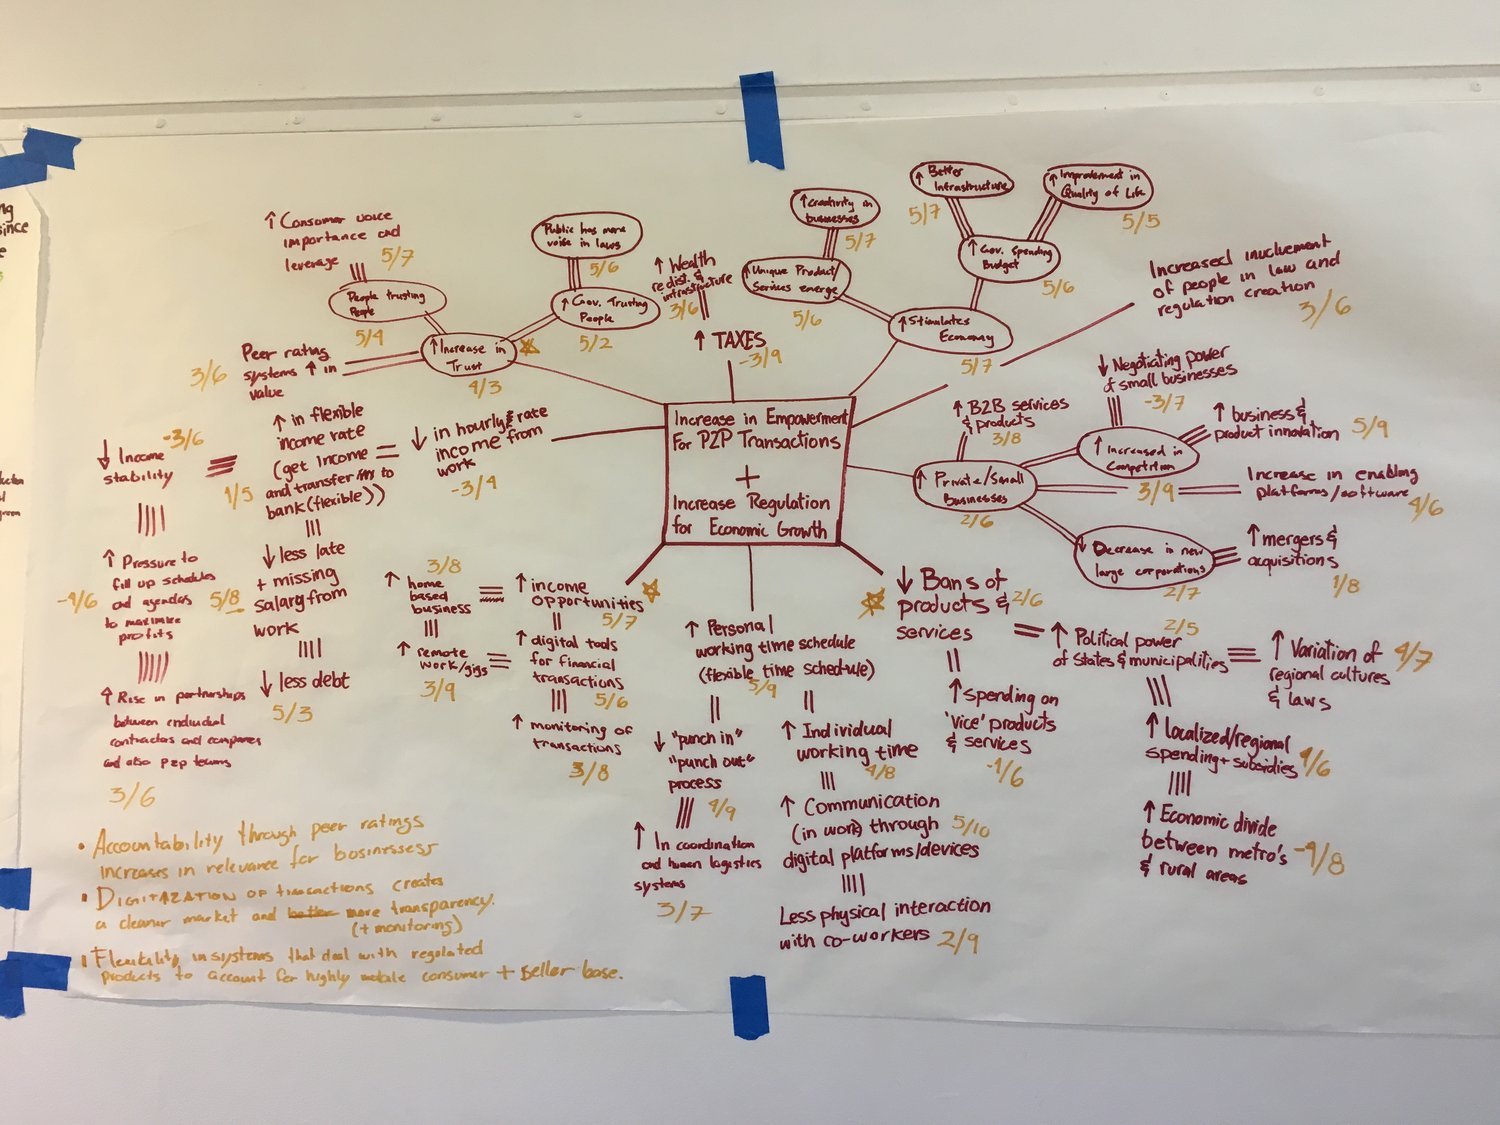 ng
since
e
↑ Consumer voice
importance and
leverage
5/7
People trusting
People
5/4
Public has more
voice in laws
5/6
↑ Gov. Trusting
People
5/2
↑ Increase in
Trust
4/3
Peer rating
systems ↑ in
value
3/6
↑ Wealth
redist. &
infrastructure
3/6
↑ TAXES
-3/9
↑ creativity in
businesses
5/7
↑ Unique Product/
Services emerge
5/6
↑ Better
Infrastructure
5/7
↑ Improvement in
Quality of Life
5/5
↑ Gov. Spending
Budget
5/6
↑ Stimulates
Economy
5/7
Increased involvement
of people in law and
regulation creation
3/6
Increase in Empowerment
For P2P Transactions
+
Increase Regulation
for Economic Growth
↓ in hourly rate
income from
work
-3/4
↑ in flexible
income rate
(get income
and transfer to
bank (flexible))
1/5
↓ Income
stability
-3/6
↑ Pressure to
fill up schedules
and agendas
to maximize
profits
-4/6
↑ Rise in partnerships
between individual
contractors and companies
and also P2P teams
3/6
↓ less late
+ missing
salary from
work
5/8
↓ less debt
5/3
↑ B2B services
& products
3/8
↑ Private/Small
Businesses
2/6
↓ Negotiating power
of small businesses
-3/7
↑ Increased in
Competition
3/9
↑ business &
product innovation
5/9
Increase in enabling
platforms/software
4/6
↓ Decrease in new
large corporations
2/7
↑ mergers &
acquisitions
1/8
↑ income
opportunities
5/7
↑ home
based
business
3/8
↑ remote
work/gigs
3/9
↑ digital tools
for financial
transactions
5/6
↑ monitoring of
transactions
3/8
↑ Personal
working time schedule
(flexible time schedule)
5/9
↓ "punch in"
"punch out"
process
4/9
↑ In coordination
and human logistics
systems
3/7
↑ Individual
working time
4/8
↑ Communication
(in work) through
digital platforms/devices
5/10
Less physical interaction
with co-workers
2/9
↓ Bans of
products &
services
2/6
↑ spending on
'vice' products
& services
-1/6
↑ Political power
of states & municipalities
2/5
↑ Variation of
regional cultures
& laws
4/7
↑ localized/regional
spending + subsidies
4/6
↑ Economic divide
between metro's
& rural areas
-4/8
• Accountability through peer ratings
increases in relevance for businesses
• DIGITIZATION OF transactions creates
a cleaner market and better more transparency.
(+ monitoring)
• Flexibility in systems that deal with regulated
products to account for highly mobile consumer + seller base.